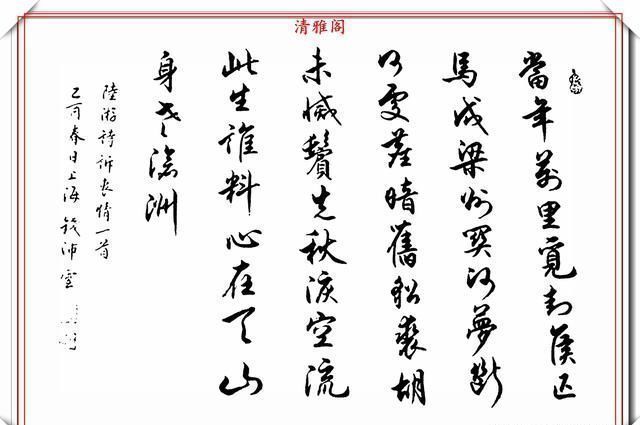 清雅阁
當年萬里覓封侯匹
馬戍梁州關河夢斷
何處塵暗舊貂裘胡
未滅鬢先秋淚空流
此生誰料心在天山
身老滄洲
陸游詩訴衷情一首
乙酉春日上海錢沛雲